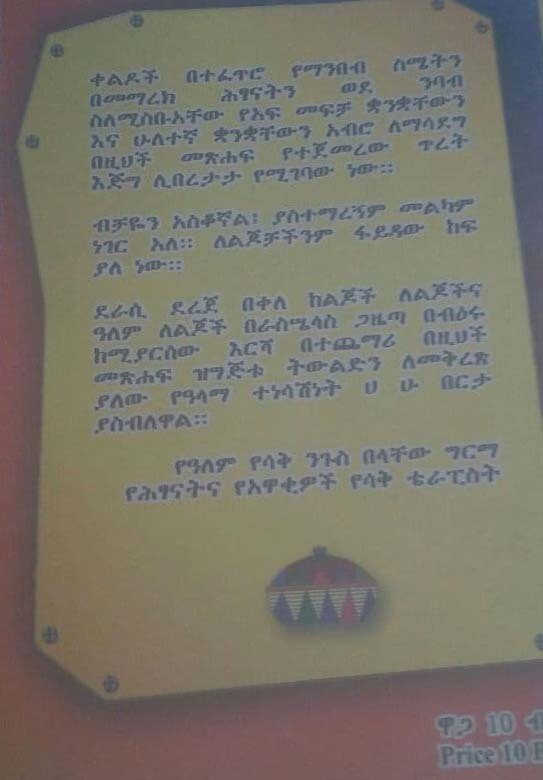 ቀልዶች በተፈጥሮ የማንበብ ስሜትን
በመማረክ ሕፃናትን ወደ ንባብ
ስለሚስቡአቸው የአፍ መፍቻ ቋንቋቸውን
እና ሁለተኛ ቋንቋቸውን አብሮ ለማሳደግ
በዚህች መጽሐፍ የተጀመረው ጥረት
እጅግ ሊበረታታ የሚገባው ነው።
ብቻዬን አስቆኛል፤ ያስተማረኝም መልካም
ነገር አለ። ለልጆቻችንም ፋይዳው ከፍ
ያለ ነው።
ደራሲ ደረጀ በቀለ ከልጆች ለልጆችና
ዓለም ለልጆች በራስሤላስ ጋዜጣ በብዕሩ
ከሚያርሰው እርሻ በተጨማሪ በዚህች
መጽሐፍ ዝግጅቱ ትውልድን ለመቅረጽ
ያለው የዓላማ ተነሳሽነት ሀ ሁ በርታ
ያስብለዋል።
የዓለም የሳቅ ንጉስ በላቸው ግርማ
የሕፃናትና የአዋቂዎች የሳቅ ቴራፒስት
ዋጋ 10 ብ
Price 10 B